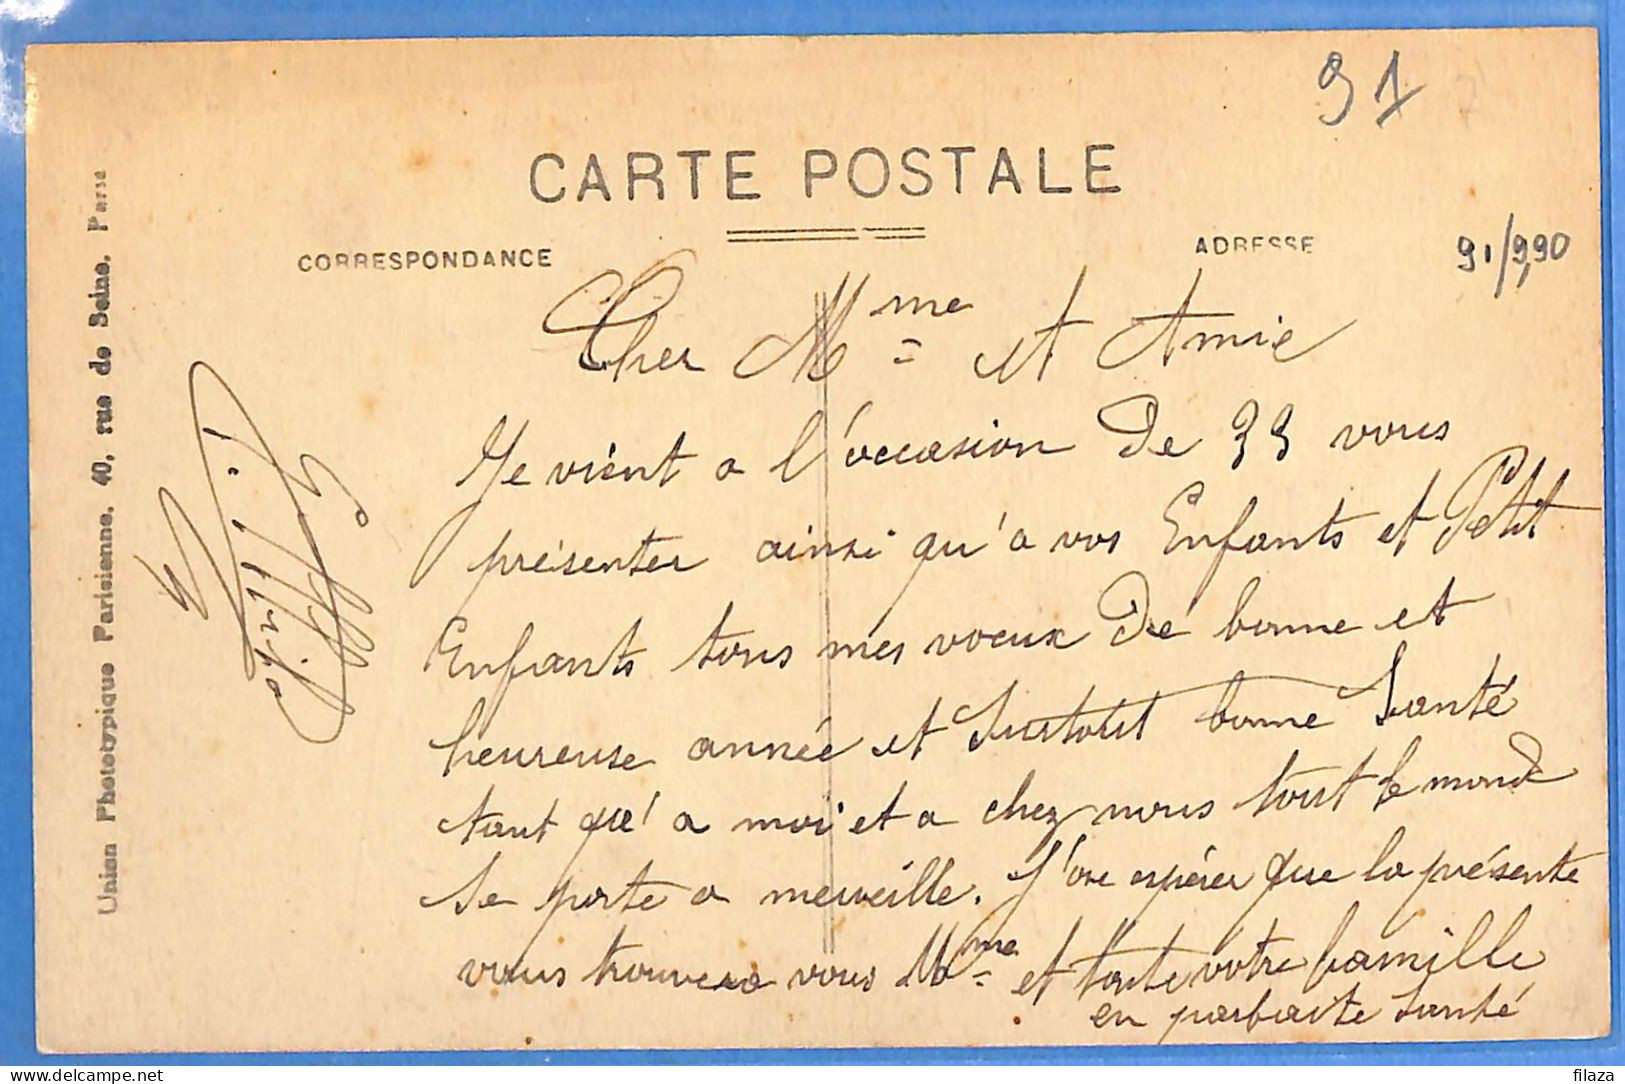 91
CARTE POSTALE
CORRESPONDANCE
ADRESSE
91/9,90
Cher Mme et Amie
Je vient a l'occasion de 33 vous
présenter ainsi qu'a vos Enfants et Petit
Enfants tous mes voeux de bonne et
heureuse année et surtout bonne Santé
tant que' a moi et a chez nous tout le monde
se porte a merveille. J'ose espérer que la présente
vous trouvera vous Mme et toute votre famille
en parfaite santé
Union Photopypique Parisienne. 40, rue de Seine. Paris
www.delcampe.net
filaza